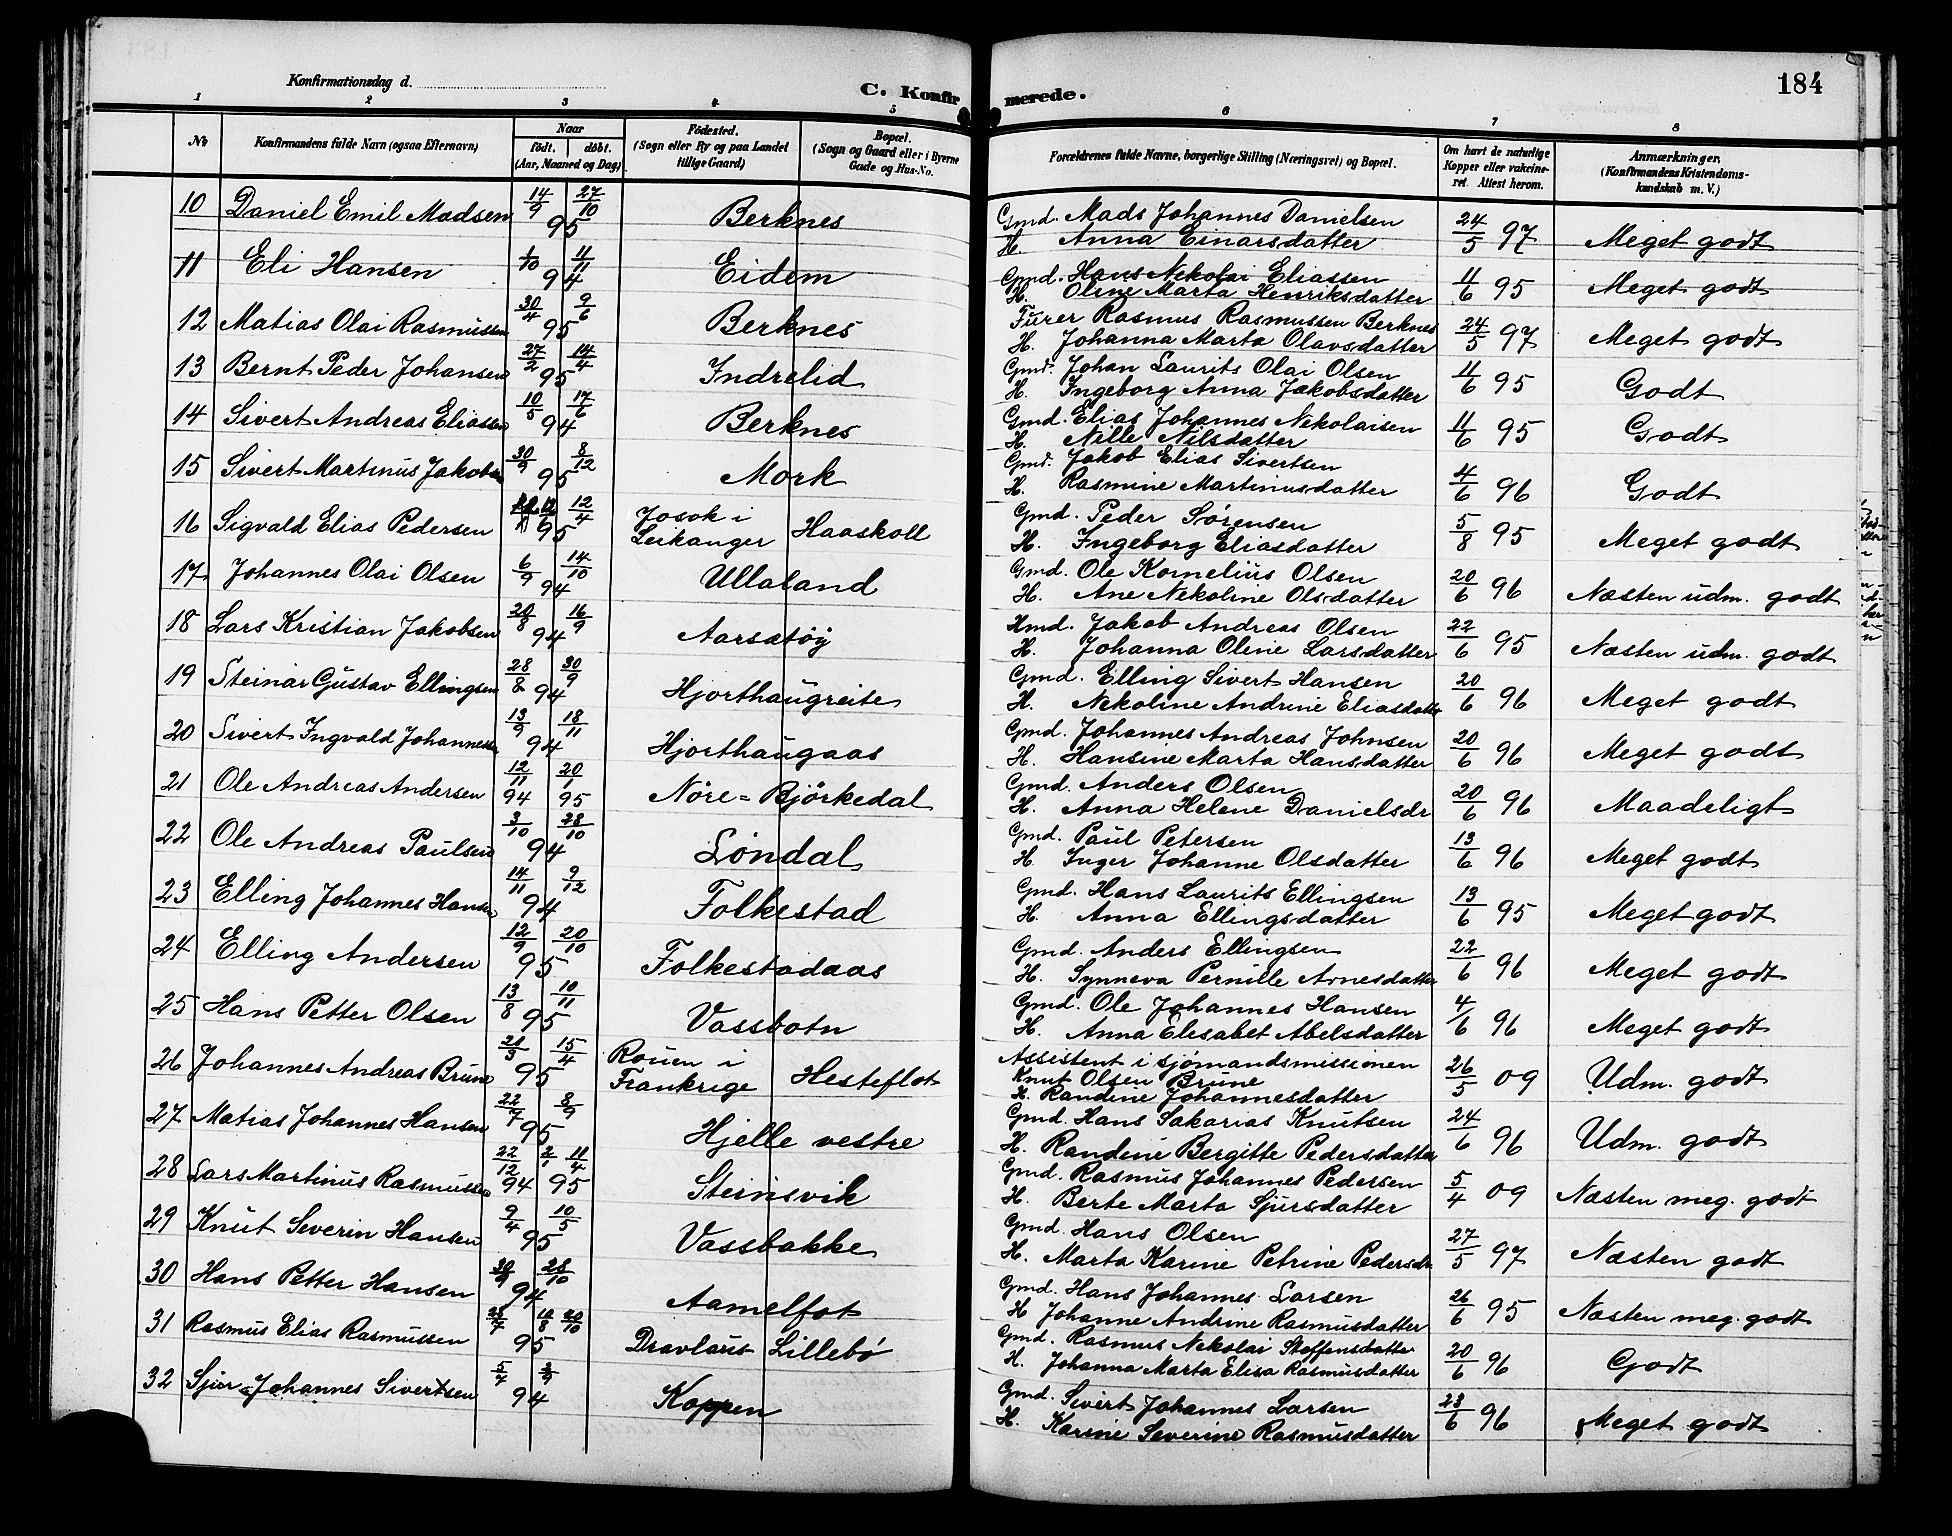 184
Konfirmationsdag d.
C. Konfirmerede.
1 2 3 4 5 6 7 8
No Konfirmandens fulde Navn (ogsaa Efternavn) Naar født. døbt. (Aar, Maaned og Dag) Fødested. (Sogn eller By og paa Landet tillige Gaard) Bopæl. (Sogn og Gaard eller i Byerne Gade og Hus-No. Forældrenes fulde Navne, borgerlige Stilling (Næringsvei) og Bopæl. Om havt de naturlige Kopper eller vakcineret. Attest herom. Anmærkninger, (Konfirmandens Kristendomskundskab m. V.)
10 Daniel Emil Madsen 14/9 27/10 95 Berknes Gmd. Mads Johannes Danielsen 24/5 97 Meget godt
H. Anna Einarsdatter
11 Eli Hansen 1/10 11/11 94 Eidem Gmd. Hans Nekolai Eliassen 11/6 95 Meget godt
H. Oline Marta Henriksdatter
12 Matias Olai Rasmussen 30/4 9/6 95 Berknes Furer Rasmus Rasmussen Berknes 24/5 97 Meget godt
H. Johanna Marta Olavsdatter
13 Bernt Peder Johansen 27/2 14/4 95 Indrelid Gmd. Johan Laurits Olai Olsen 11/6 95 Godt
H. Ingeborg Anna Jakobsdatter
14 Sivert Andreas Eliassen 10/5 17/6 94 Berknes Gmd. Elias Johannes Nekolaisen 11/6 95 Godt
H. Nille Nilsdatter
15 Sivert Martinus Jakobsen 30/9 8/12 95 Mork Gmd. Jakob Elias Sivertsen 4/6 96 Godt
H. Rasmine Martinusdatter
16 Sigvald Elias Pedersen 12/4 95 Josok i Leikanger Haaskoll Gmd. Peder Sørensen 5/8 95 Meget godt
H. Ingeborg Eliasdatter
17 Johannes Olai Olsen 6/9 14/10 94 Ullaland Gmd. Ole Kornelius Olsen 20/6 96 Næsten udm. godt
H. Ane Nekoline Olsdatter
18 Lars Kristian Jakobsen 20/8 16/9 94 Aarsætøy Hmd. Jakob Andreas Olsen 22/6 95 Næsten udm. godt
H. Johanna Oline Larsdatter
19 Steinar Gustav Ellingsen 28/8 30/9 94 Hjorthaugreite Gmd. Elling Sivert Hansen 20/6 96 Meget godt
H. Nekoline Andrine Eliasdatter
20 Sivert Ingvald Johannessen 13/9 18/11 94 Hjorthaugaas Gmd. Johannes Andreas Johnsen 20/6 96 Meget godt
H. Hansine Marta Hansdatter
21 Ole Andreas Andersen 12/11 94 20/1 95 Nore=Bjørkedal Gmd. Anders Olsen 20/6 96 Maadeligt
H. Anna Helene Danielsdr
22 Ole Andreas Paulsen 3/10 28/10 94 Løndal Gmd. Paul Petersen 13/6 96 Meget godt
H. Inger Johanne Olsdatter
23 Elling Johannes Hansen 14/11 9/12 94 Folkestad Gmd. Hans Laurits Ellingsen 13/6 95 Meget godt
H. Anna Ellingsdatter
24 Elling Andersen 12/9 20/10 95 Folkestadaas Gmd. Anders Ellingsen 22/6 96 Meget godt
H. Synneva Pernille Arnesdatter
25 Hans Petter Olsen 13/8 10/11 95 Vassbotn Gmd. Ole Johannes Hansen 4/6 96 Meget godt
H. Anna Elisabet Abelsdatter
26 Johannes Andreas Brune 21/3 15/4 95 Rouen i Frankrige Hesteflot Assistent i sjømandsmissionen 26/5 09 Udm. godt
Knut Olsen Brune
H. Randine Johannesdatter
27 Matias Johannes Hansen 22/7 8/9 95 Hjelle vestre Gmd. Hans Sakarias Knutsen 24/6 96 Udm. godt
H. Randine Bergitte Pedersdatter
28 Lars Martinus Rasmussen 22/12 94 2/1 11/4 95 Steinsvik Gmd. Rasmus Johannes Pedersen 5/4 09 Næsten meg. godt
H. Berte Marta Sjursdatter
29 Knut Severin Hansen 9/4 10/5 95 Vassbakke Gmd. Hans Olsen 27/5 97 Næsten godt
H. Marta Karine Petrine Pedersdr
30 Hans Petter Hansen 30/9 28/10 94 Aamelfot Gmd. Hans Johannes Larsen 26/6 95 Næsten meg. godt
H Johanne Andrine Rasmusdatter
31 Rasmus Elias Rasmussen 20/10 95 Dravlaus Lillebø Gmd. Rasmus Nekolai Stoffensdatter 20/6 96 Godt
H. Johanna Marta Elisa Rasmusdatter
32 Sjur=Johannes Sivertsen 5/7 94 Koppen Gmd. Sivert Johannes Larsen 23/6 96 Meget godt
H. Karine Severine Rasmusdatter